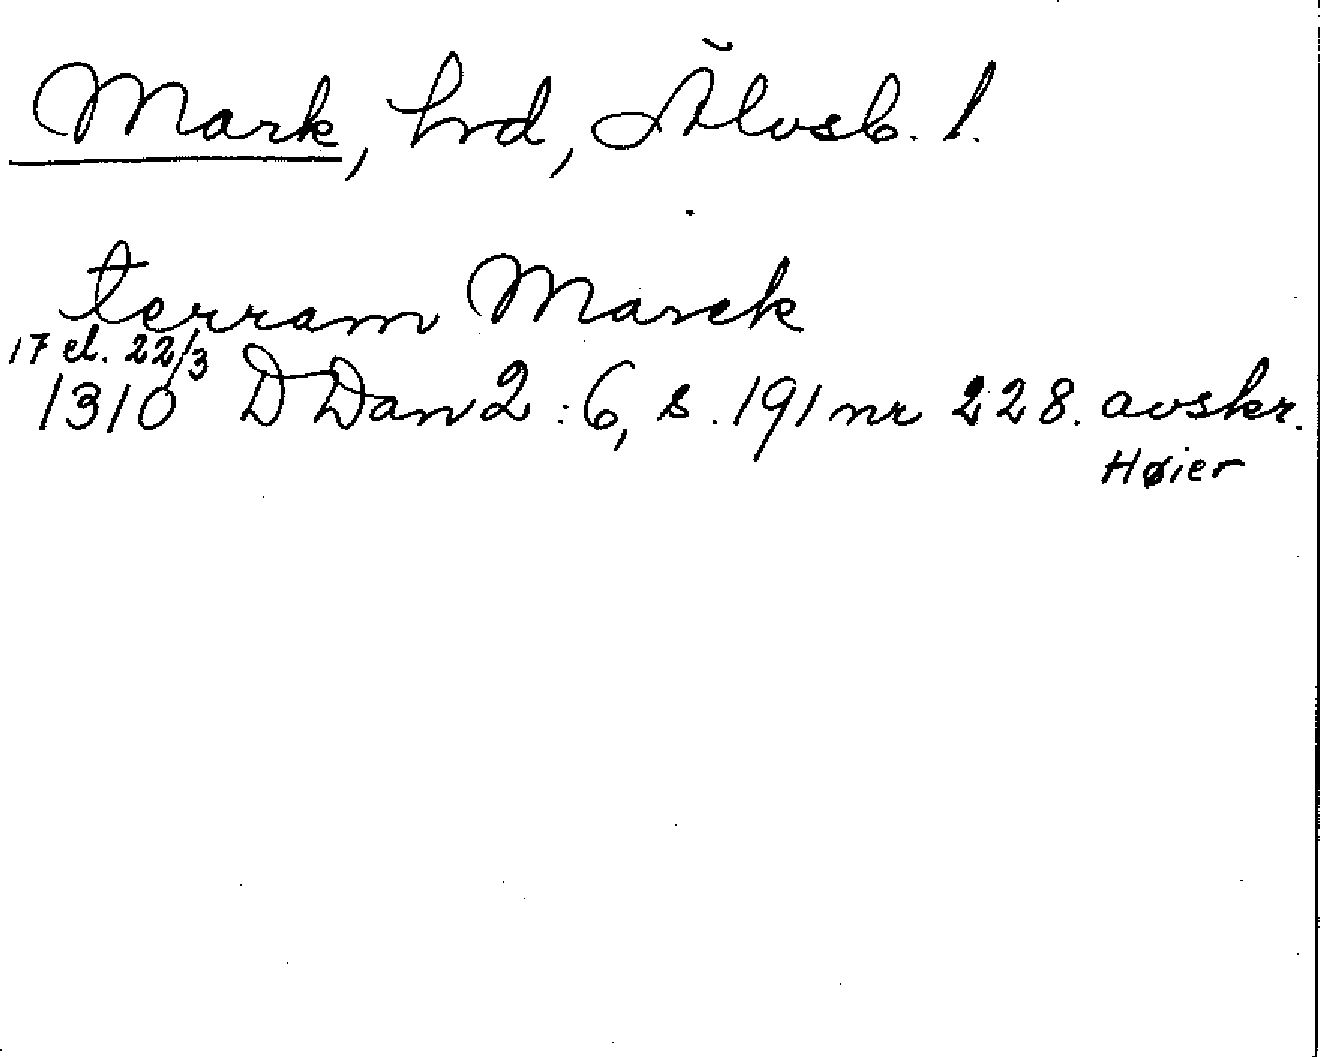 Mark, hrd, Älvsb. l.
terram Marck
17 el. 22/3
1310 DDan 2:6, s. 191 nr 228. avskr.
Høier